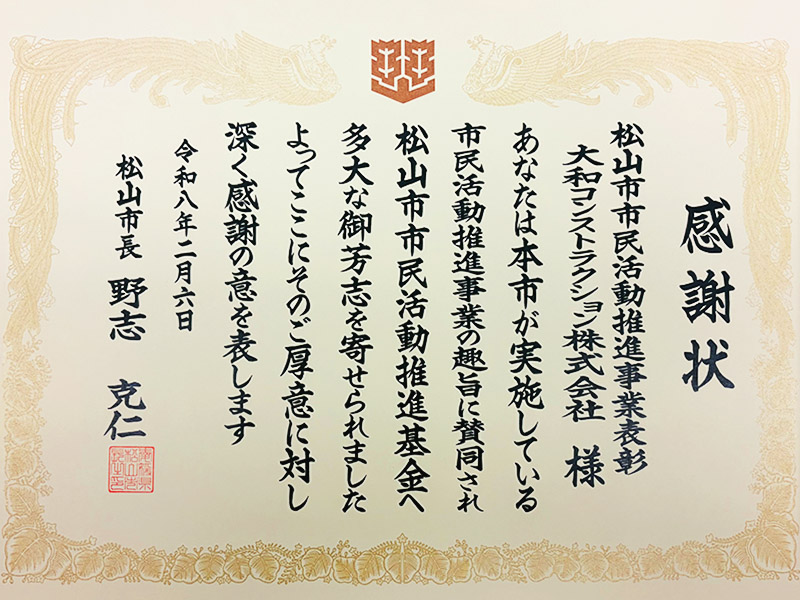 感謝状
松山市市民活動推進事業表彰
大和コンストラクション株式会社 様
あなたは本市が実施している
市民活動推進事業の趣旨に賛同され
松山市市民活動推進基金へ
多大な御芳志を寄せられました
よってここにそのご厚意に対し
深く感謝の意を表します
令和八年二月六日
松山市長 野志 克仁